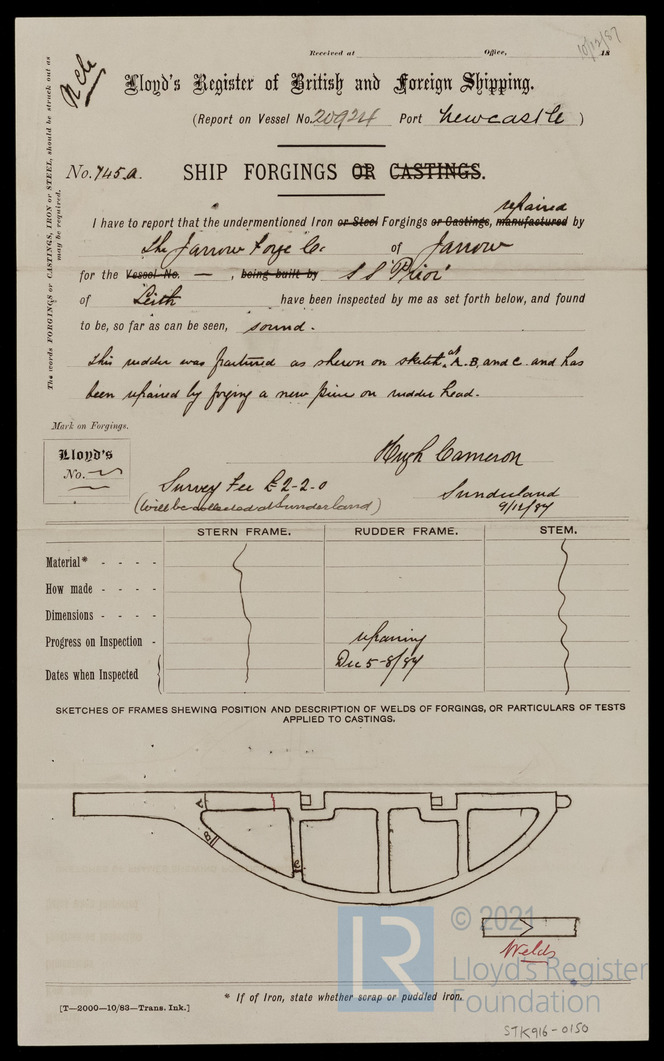 Received at Office, 18
10/12/87
Lloyd's Register of British and Foreign Shipping.
(Report on Vessel No. 20924 Port Newcastle)
No. 745.a. SHIP FORGINGS OR CASTINGS.
The words FORGINGS or CASTINGS, IRON or STEEL, should be struck out as
may be required.
repaired
I have to report that the undermentioned Iron or Steel Forgings or Castings, manufactured by
The Jarrow Forge Co: of Jarrow
for the Vessel No. — , being built by S S "Prior"
of Leith have been inspected by me as set forth below, and found
to be, so far as can be seen, sound.
This rudder was fractured as shewn on sketch at A. B. and C. and has
been repaired by forging a new piece on rudder head.
Mark on Forgings.
Lloyd's
No.
Hugh Cameron
Survey Fee £2-2-0
(Will be collected at Sunderland)
Sunderland
9/12/87
STERN FRAME. RUDDER FRAME. STEM.
Material* - - - -
How made - - - -
Dimensions - - - -
Progress on Inspection - repairing
Dates when Inspected Dec 5-8/87
SKETCHES OF FRAMES SHEWING POSITION AND DESCRIPTION OF WELDS OF FORGINGS, OR PARTICULARS OF TESTS
APPLIED TO CASTINGS.
A
B
C
Welds
LR
© 2021
Lloyd's Register
Foundation
* If of Iron, state whether scrap or puddled iron.
[T—2000—10/83—Trans. Ink.]
STK916-0150